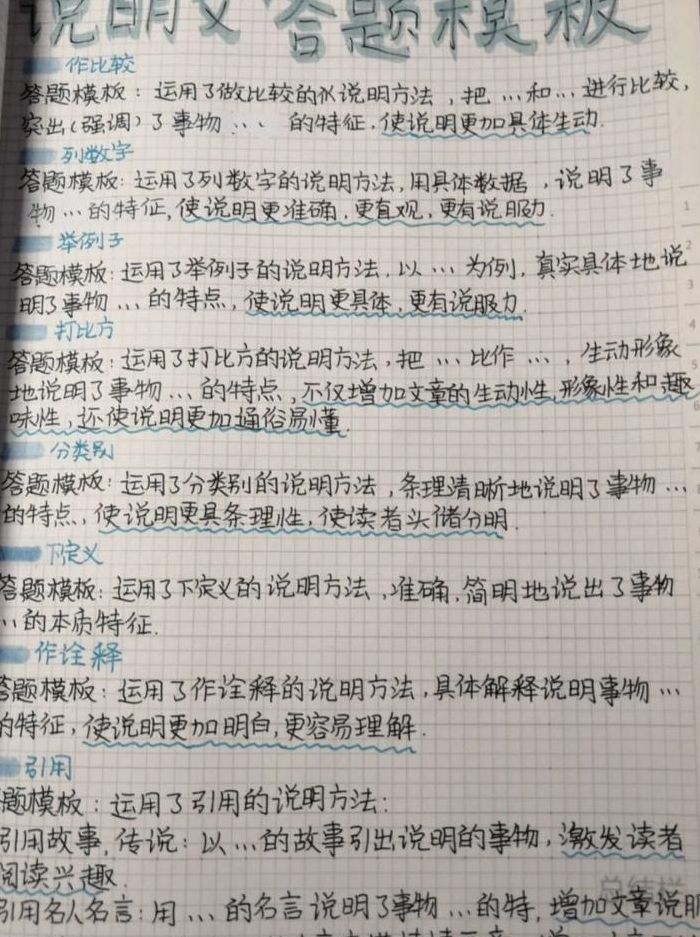 说明文答题模板
作比较
答题模板：运用了做比较的的说明方法，把…和…进行比较，
突出(强调)了事物…. 的特征，使说明更加具体生动.
列数字
答题模板：运用了列数字的说明方法，用具体数据，说明了事
物…的特征，使说明更准确，更直观，更有说服力.
举例子
答题模板：运用了举例子的说明方法，以…为例，真实具体地说
明了事物…的特点，使说明更具体，更有说服力.
打比方
答题模板：运用了打比方的说明方法，把…比作…，生动形象
地说明了事物…的特点，不仅增加文章的生动性，形象性和趣
味性，还使说明更加通俗易懂.
分类别
答题模板：运用了分类别的说明方法，条理清晰地说明了事物…
的特点，使说明更具条理性，使读者头储分明.
下定义
答题模板：运用了下定义的说明方法，准确，简明地说出了事物
…的本质特征.
作诠释
答题模板：运用了作诠释的说明方法，具体解释说明事物…
的特征，使说明更加明白，更容易理解.
引用
题模板：运用了引用的说明方法：
引用故事，传说：以…的故事引出说明的事物，激发读者
阅读兴趣.
引用名人名言：用…的名言说明了事物…的特，增加文章说明